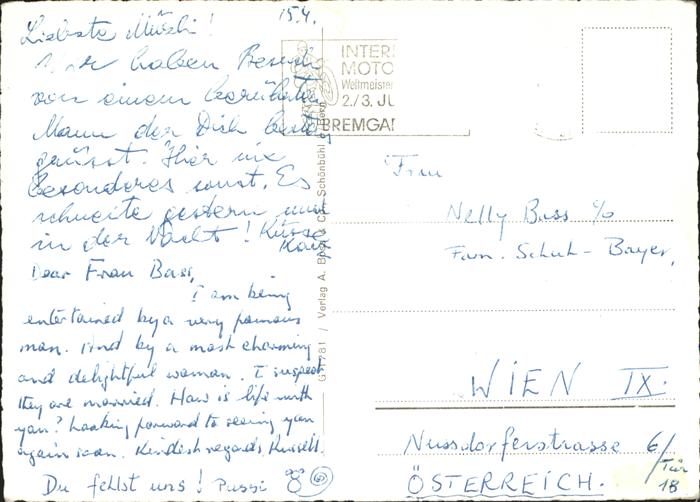 15.4.
Liebste Müsli!
Wir haben Besuch
von einem berühmten
Mann der Dich bestens
grüsst. Hier nix
besonderes sonst. Es
schneite gestern und
in der Nacht! Küsse
Dear Frau Bass,
I am being
entertained by a very famous
man. And by a most charming
and delightful woman. I suspect
they are married. How is life with
you? Looking forward to seeing you
again soon. Kindest regards
Du fehlst uns! Pussi
INTER
MOTO
Weltmeister
2./3. JU
BREMGA
/ Verlag A. Schönbühl
Frau
Nelly Bass c/o
Fam. Schuh-Bayer,
WIEN IX.
Nussdorferstrasse 6/
Tür
1B
ÖSTERREICH.